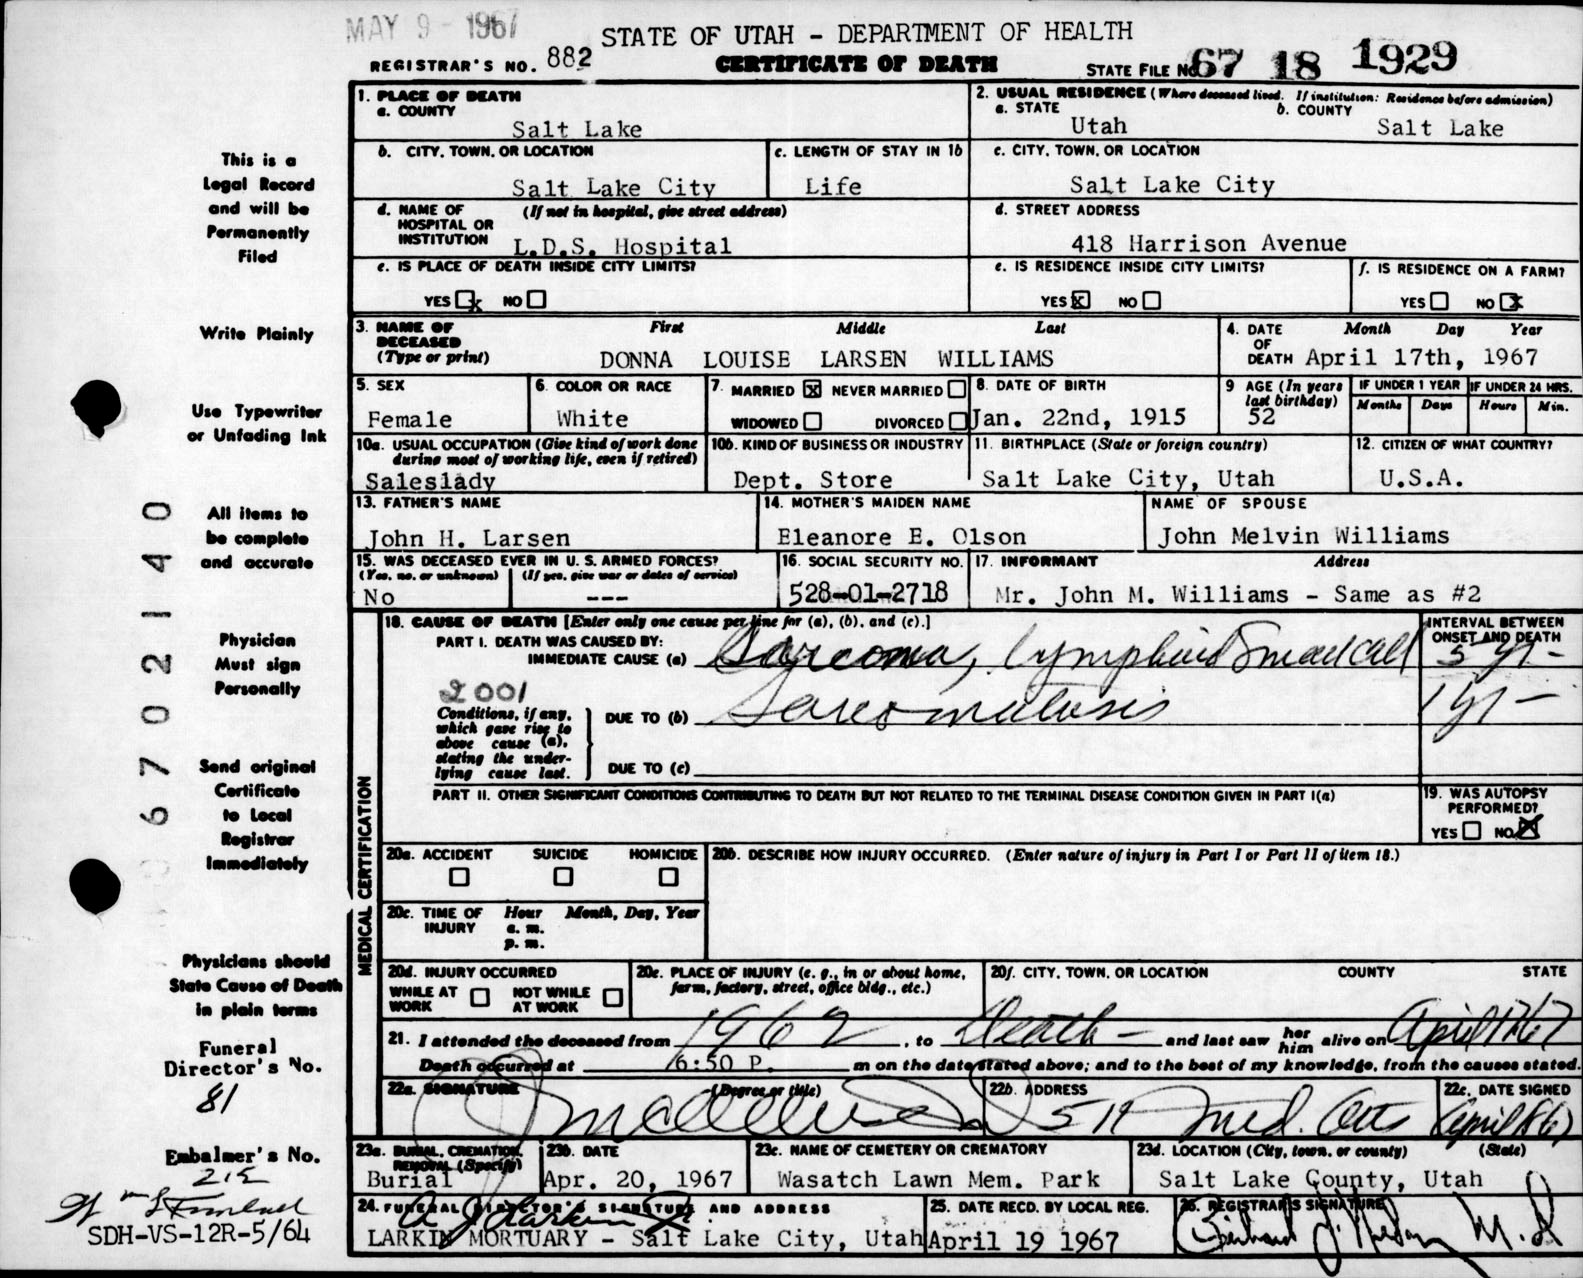 MAY 9 - 1967
STATE OF UTAH – DEPARTMENT OF HEALTH
REGISTRAR'S NO. 882
CERTIFICATE OF DEATH
STATE FILE NO. 67 18 1929
1. PLACE OF DEATH
a. COUNTY
Salt Lake
2. USUAL RESIDENCE (Where deceased lived. If institution: Residence before admission)
a. STATE
Utah
b. COUNTY
Salt Lake
b. CITY, TOWN, OR LOCATION
Salt Lake City
c. LENGTH OF STAY IN 1b
Life
c. CITY, TOWN, OR LOCATION
Salt Lake City
d. NAME OF HOSPITAL OR INSTITUTION
(If not in hospital, give street address)
L.D.S. Hospital
d. STREET ADDRESS
418 Harrison Avenue
e. IS PLACE OF DEATH INSIDE CITY LIMITS?
YES x NO
e. IS RESIDENCE INSIDE CITY LIMITS?
YES X NO
f. IS RESIDENCE ON A FARM?
YES NO X
3. NAME OF DECEASED (Type or print)
First Middle Last
DONNA LOUISE LARSEN WILLIAMS
4. DATE OF DEATH
Month Day Year
April 17th, 1967
5. SEX
Female
6. COLOR OR RACE
White
7. MARRIED X NEVER MARRIED
WIDOWED DIVORCED
8. DATE OF BIRTH
Jan. 22nd, 1915
9 AGE (In years last birthday)
52
IF UNDER 1 YEAR
Months Days
IF UNDER 24 HRS.
Hours Min.
10a. USUAL OCCUPATION (Give kind of work done during most of working life, even if retired)
Saleslady
10b. KIND OF BUSINESS OR INDUSTRY
Dept. Store
11. BIRTHPLACE (State or foreign country)
Salt Lake City, Utah
12. CITIZEN OF WHAT COUNTRY?
U.S.A.
13. FATHER'S NAME
John H. Larsen
14. MOTHER'S MAIDEN NAME
Eleanore E. Olson
NAME OF SPOUSE
John Melvin Williams
15. WAS DECEASED EVER IN U. S. ARMED FORCES?
(Yes, no, or unknown) (If yes, give war or dates of service)
No ---
16. SOCIAL SECURITY NO.
528-01-2718
17. INFORMANT Address
Mr. John M. Williams - Same as #2
MEDICAL CERTIFICATION
18. CAUSE OF DEATH [Enter only one cause per line for (a), (b), and (c).]
INTERVAL BETWEEN ONSET AND DEATH
PART I. DEATH WAS CAUSED BY:
IMMEDIATE CAUSE (a) Sarcoma, Lymphoid Small Cell 5 yr-
2001
Conditions, if any, which gave rise to above cause (a), stating the underlying cause last.
DUE TO (b) Sarcomatosis 1 yr-
DUE TO (c)
PART II. OTHER SIGNIFICANT CONDITIONS CONTRIBUTING TO DEATH BUT NOT RELATED TO THE TERMINAL DISEASE CONDITION GIVEN IN PART I(a)
19. WAS AUTOPSY PERFORMED?
YES NO X
20a. ACCIDENT SUICIDE HOMICIDE
20b. DESCRIBE HOW INJURY OCCURRED. (Enter nature of injury in Part I or Part II of item 18.)
20c. TIME OF INJURY
Hour Month, Day, Year
a. m.
p. m.
20d. INJURY OCCURRED
WHILE AT WORK NOT WHILE AT WORK
20e. PLACE OF INJURY (e. g., in or about home, farm, factory, street, office bldg., etc.)
20f. CITY, TOWN, OR LOCATION COUNTY STATE
21. I attended the deceased from 1962, to Death - and last saw her him alive on April 17 67
Death occurred at 6:50 P. m on the date stated above; and to the best of my knowledge, from the causes stated.
22a. SIGNATURE (Degree or title)
22b. ADDRESS
511 Med. Arts
22c. DATE SIGNED
April 18 67
23a. BURIAL, CREMATION, REMOVAL (Specify)
Burial
23b. DATE
Apr. 20, 1967
23c. NAME OF CEMETERY OR CREMATORY
Wasatch Lawn Mem. Park
23d. LOCATION (City, town, or county) (State)
Salt Lake County, Utah
24. FUNERAL DIRECTOR'S SIGNATURE AND ADDRESS
LARKIN MORTUARY - Salt Lake City, Utah
25. DATE RECD. BY LOCAL REG.
April 19 1967
26. REGISTRAR'S SIGNATURE
M.D
This is a
Legal Record
and will be
Permanently
Filed
Write Plainly
Use Typewriter
or Unfading Ink
All items to
be complete
and accurate
Physician
Must sign
Personally
Send original
Certificate
to Local
Registrar
Immediately
Physicians should
State Cause of Death
in plain terms
Funeral
Director's No.
81
Embalmer's No.
215
SDH-VS-12R-5/64
6702140